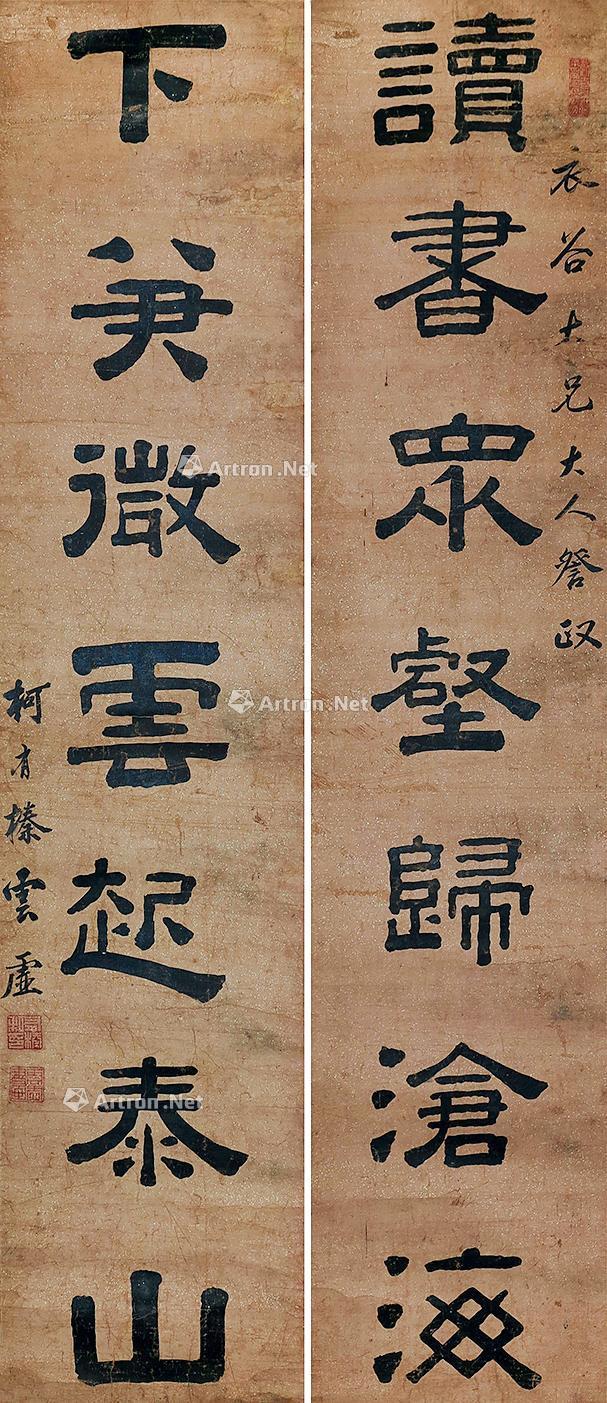 衣谷兄大人詧政
讀書眾壑歸滄海
下筆微雲起泰山
柯有榛雲虛
Artron.Net
Artron.Net
Artron.Net